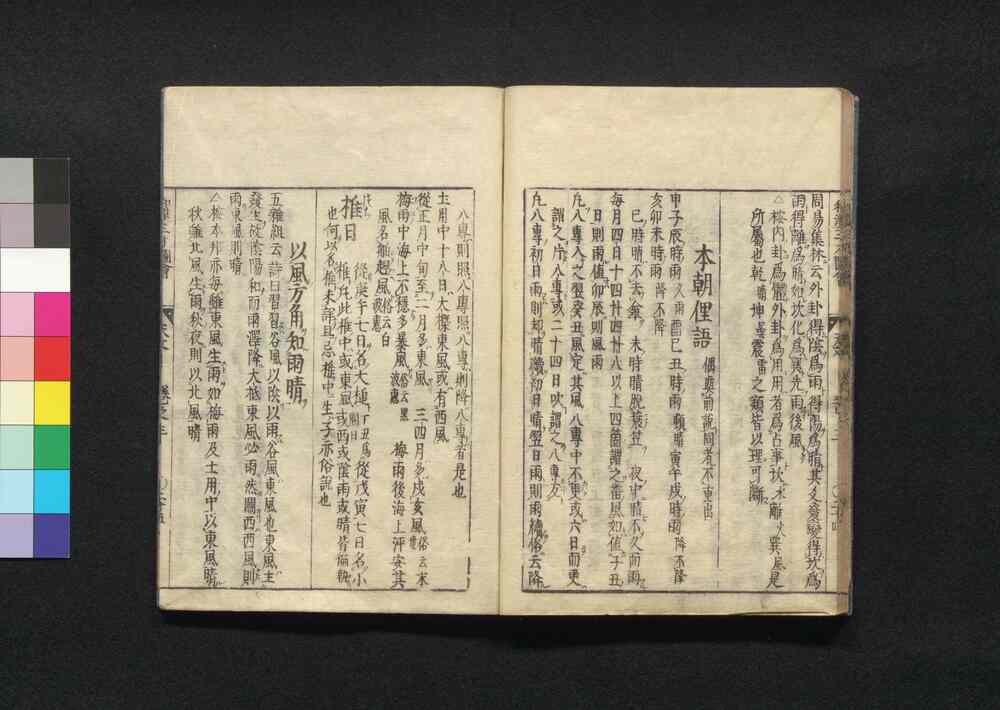 周易集林云外卦得陰爲雨得陽爲晴其爻變得坎爲
雨得離爲晴如坎化爲巽先雨後風
△按内卦爲體外卦爲用用者爲占事坎水離火巽風是
所屬也乾晴坤曇震雷之類皆以理可斷
本朝俚語 偶與前説同者不重出
甲子辰時雨久雨酉巳丑時雨頓晴寅午戌時雨降不降
亥卯未時雨降不降
巳時晴不去笠 未時晴脱蓑笠 夜中晴不久而雨
毎月四日十四廿四廿八以上四箇謂之
日則雨値卯辰則風雨
凡八專入之翌癸丑風定其風八專中不更或六日而更
謂之片八專或二十四日吹謂之八專方
凡八專初日雨則却晴續初日晴翌日雨則雨續俗云降
八專則照八專照八專則降八專者是也
土用中十八日大概東風或有西風
從正月中旬至二月多東風 三四月多戌亥風
梅雨中海上不穩多暴風俗云黒 梅雨後海上平安其
風名俗云白
樁日 從庚子七日名大樁丁丑爲間日從戊寅七日名小
樁凡此樁中或東風或西或陰雨或晴皆
也何以名樁未詳且忌樁中生子亦俗説也
以風方角知雨晴
五雜組云詩曰習習谷風以陰以雨谷風東風也東風主
發生故陰陽和而雨澤降大抵東風必雨然關西西風則
雨東風則晴
△按本邦亦毎雖東風生雨如梅雨及土用中以東風晴
秋雖北風生雨秋夜則以北風晴